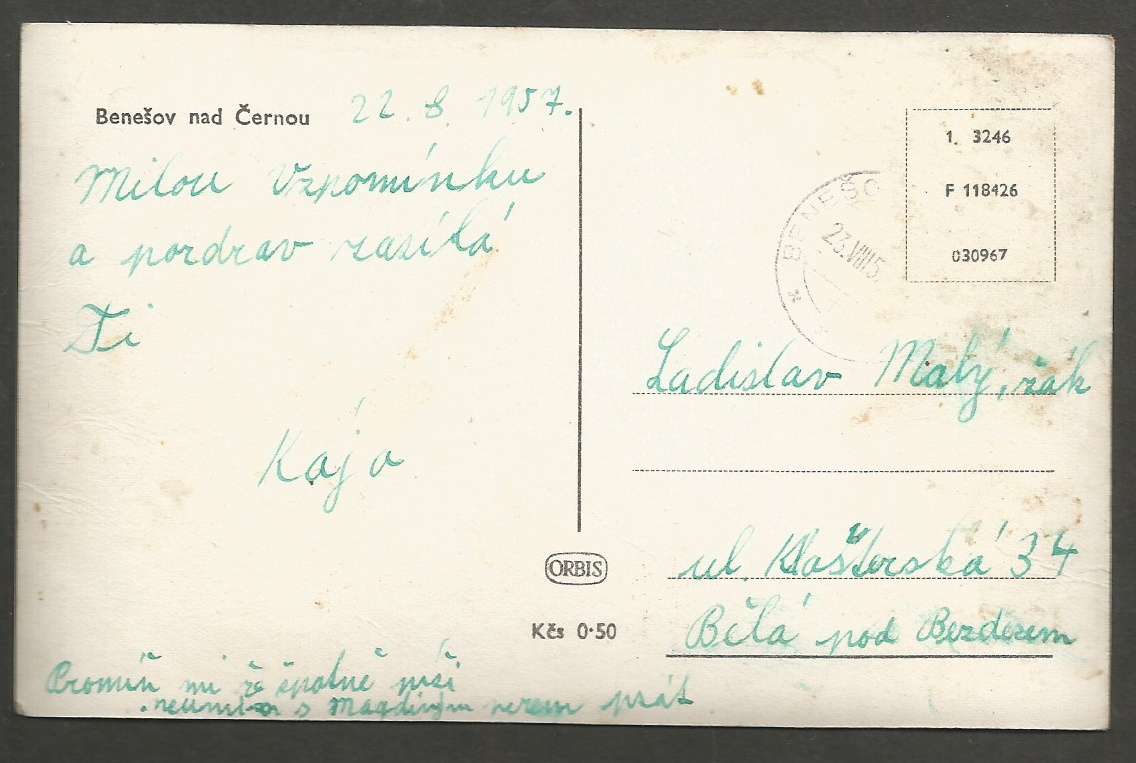 Benešov nad Černou 22. 8. 1957.
Milou Vzpomínku
a pozdrav zasílá
Ti
Kája
ORBIS
Kčs 0·50
Promiň mi že špatně píši
neumím s Magdiným perem psát
1. 3246
F 118426
030967
BENEŠO
23.VIII.5
Ladislav Malý, žák
ul. Klášterská 34
Bělá pod Bezdezem